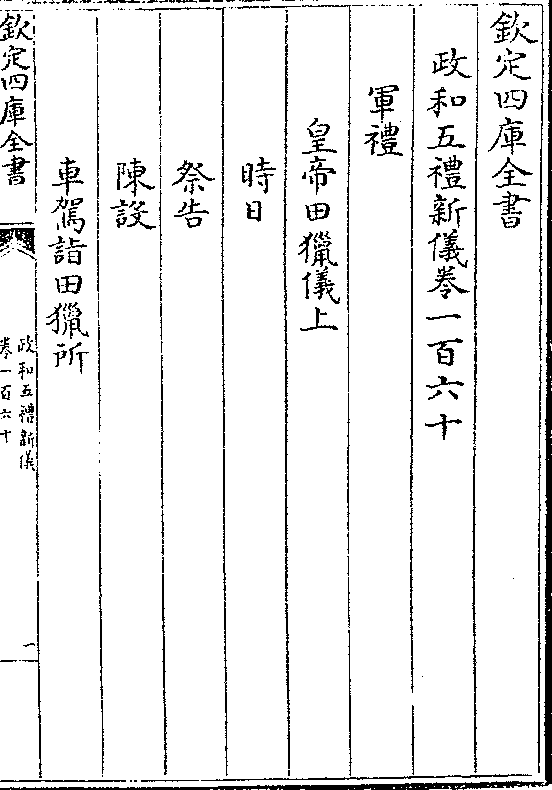 欽定四庫全書
政和五禮新儀卷一百六十
軍禮
皇帝田獵儀上
時日
祭告
陳設
車駕詣田獵所
欽定四庫全書
政和五禮新儀
卷一百六十
一